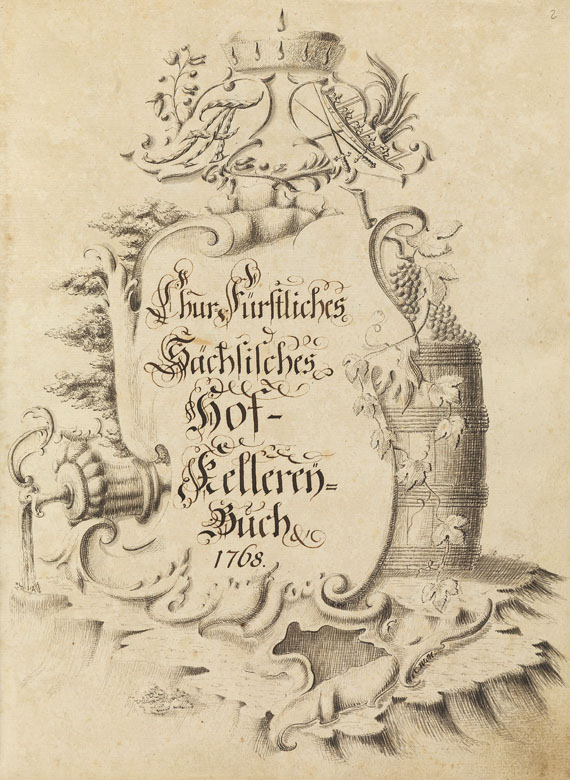 2
Chur-Fürstliches
Sächsisches
Hof-
Kellereÿ=
Buch
1768.